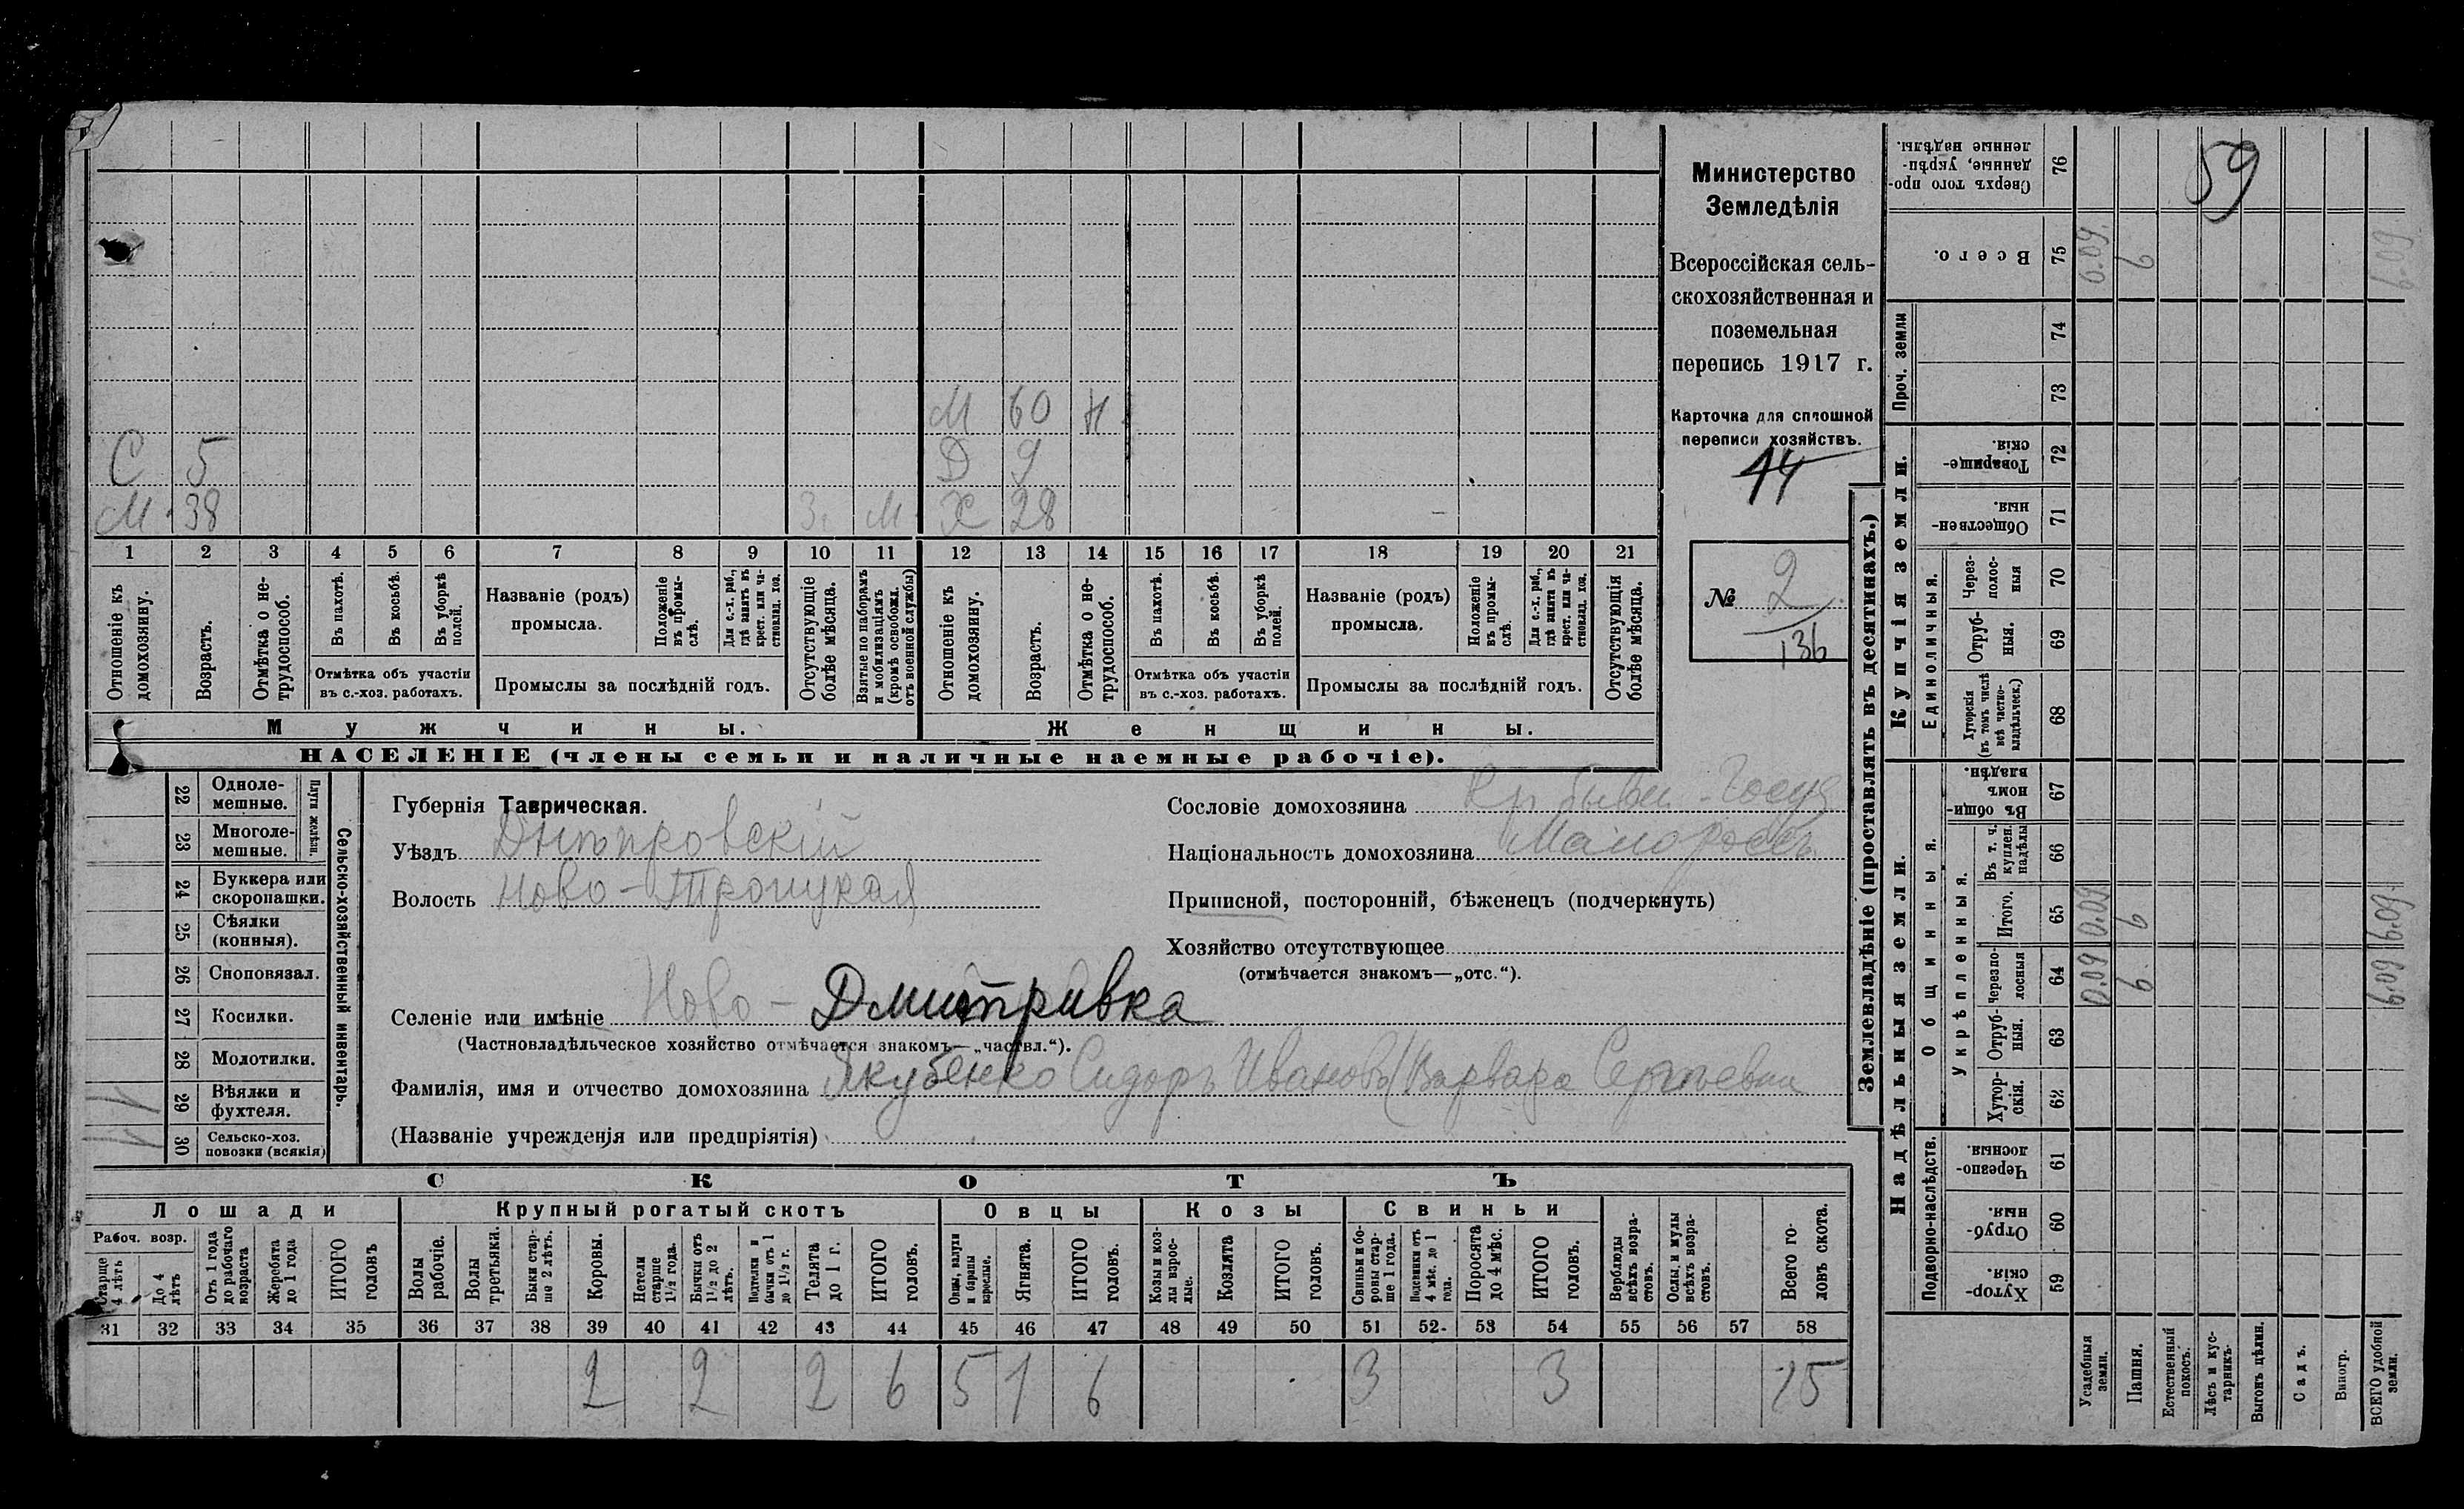 Министерство
Земледѣлія
Всероссійская сель-
скохозяйственная и
поземельная
перепись 1917 г.
Карточка для сплошной
переписи хозяйствъ.
14
№ 2
136
М 60 Н
С 5 Д 9
М. 38 З. М. Х 28
1 2 3 4 5 6 7 8 9 10 11 12 13 14 15 16 17 18 19 20 21
Отношеніе къ домохозяину.
Возрастъ.
Отмѣтка о не-трудоспособ.
Въ пахотѣ.
Въ косьбѣ.
Въ уборкѣ полей.
Отмѣтка объ участіи
въ с.-хоз. работахъ.
Названіе (родъ)
промысла.
Положеніе въ промы-слѣ.
Для с.-х. раб., гдѣ занятъ въ крест. или ча-стновлад. хоз.
Промыслы за послѣдній годъ.
Отсутствующіе болѣе мѣсяца.
Взятые по наборамъ и мобилизаціямъ (кромѣ освобожд. отъ военной службы)
Отношеніе къ домохозяину.
Возрастъ.
Отмѣтка о не-трудоспособ.
Въ пахотѣ.
Въ косьбѣ.
Въ уборкѣ полей.
Отмѣтка объ участіи
въ с.-хоз. работахъ.
Названіе (родъ)
промысла.
Положеніе въ промы-слѣ.
Для с.-х. раб., гдѣ занята въ крест. или ча-стновлад. хоз.
Промыслы за послѣдній годъ.
Отсутствующія болѣе мѣсяца.
Мужчины.
Женщины.
НАСЕЛЕНІЕ (члены семьи и наличные наемные рабочіе).
22 Одноле-мешные.
23 Многоле-мешные.
Плуги желѣзн.
24 Буккера или скоропашки.
25 Сѣялки (конныя).
26 Сноповязал.
27 Косилки.
28 Молотилки.
29 Вѣялки и фухтеля.
30 Сельско-хоз. повозки (всякія)
Сельско-хозяйственный инвентарь.
Губернія Таврическая.
Уѣздъ Днѣпровскій
Волость Ново-Троицкая
Сословіе домохозяина Кр бывш. Госуд
Національность домохозяина Малороссъ
Приписной, посторонній, бѣженецъ (подчеркнуть)
Хозяйство отсутствующее
(отмѣчается знакомъ—„отс.“).
Селеніе или имѣніе Ново-Дмитривка
(Частновладѣльческое хозяйство отмѣчается знакомъ—„частвл.“).
Фамилія, имя и отчество домохозяина Якубенко Сидоръ Ивановъ (Варвара Сергѣевна
(Названіе учрежденія или предпріятія)
СКОТЪ
Лошади
Крупный рогатый скотъ
Овцы
Козы
Свиньи
Рабоч. возр.
Старше 4 лѣтъ
До 4 лѣтъ
Отъ 1 года до рабочаго возраста
Жеребята до 1 года
ИТОГО головъ
Волы рабочіе.
Волы третьяки.
Быки стар-ше 2 лѣтъ.
Коровы.
Нетели старше 1½ года.
Бычки отъ 1½ до 2 лѣтъ.
Подтелки и бычки отъ 1 до 1½ г.
Телята до 1 г.
ИТОГО головъ.
Овцы, валухи и бараны взрослые.
Ягнята.
ИТОГО головъ.
Козы и коз-лы взрос-лые.
Козлята
ИТОГО головъ.
Свиньи и бо-ровы стар-ше 1 года.
Подсвинки отъ 4 мѣс. до 1 года.
Поросята до 4 мѣс.
ИТОГО головъ.
Верблюды всѣхъ возра-стовъ.
Ослы, и мулы всѣхъ возра-стовъ.
Всего го-ловъ скота.
31 32 33 34 35 36 37 38 39 40 41 42 43 44 45 46 47 48 49 50 51 52 53 54 55 56 57 58
2 2 2 6 5 1 6 3 3 15
Землевладѣніе (проставлять въ десятинахъ.)
59
Сверхъ того про-данные, укрѣп-ленные надѣлы. 76
Всего. 75 0.09. 6 6.09
Проч. земли 74
73
Купчія земли.
Товарище-скія. 72
Обществен-ныя. 71
Единоличныя.
Через-полос-ныя 70
Отруб-ныя. 69
Хуторскія (въ томъ числѣ всѣ частно-владѣльческ.) 68
Надѣльныя земли.
Общинныя.
Въ общи-номъ владѣн. 67
Укрѣпленныя.
Въ т. ч. куплен. надѣлы 66
Итого. 65 0.09 6 6.09
Черезпо-лосныя 64 0.09 6. 6.09
Отруб-ныя. 63
Хутор-скія. 62
Подворно-наслѣдств.
Черезпо-лосныя. 61
Отруб-ныя. 60
Хутор-скія. 59
Усадебныя земли.
Пашня.
Естественный покосъ.
Лѣсъ и кус-тарникъ.
Выгонъ цѣлин.
Садъ.
Виногр.
ВСЕГО удобной земли.